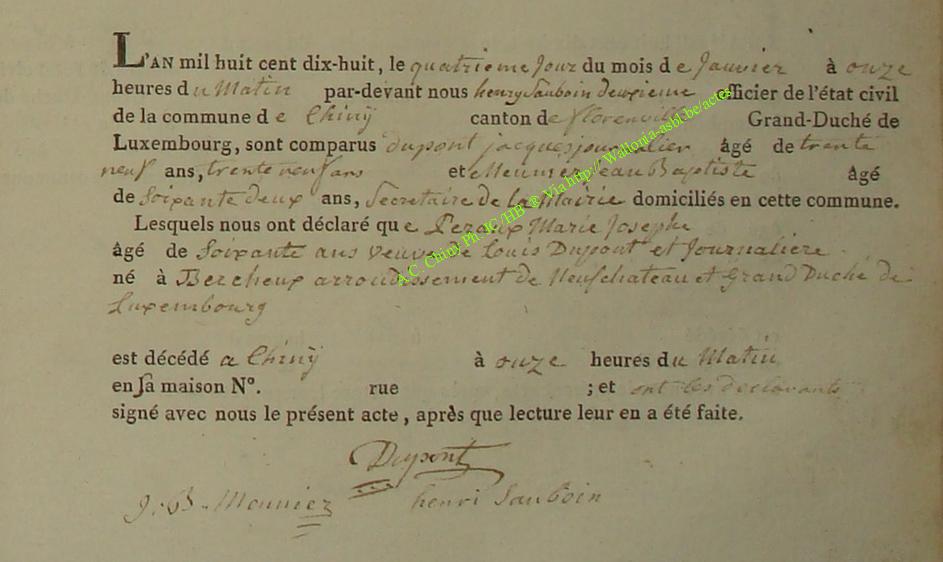 L'AN mil huit cent dix-huit, le quatrieme Jour du mois de Janvier à onze
heures du Matin par-devant nous henry Sauboin deuxieme officier de l'état civil
de la commune de Chinÿ canton de florenville Grand-Duché de
Luxembourg, sont comparus dupont jacques journalier âgé de trente
neuf ans, trente neuf ans et Meunier jean Baptiste âgé
de Soixante deux ans, Secretaire de la Mairie domiciliés en cette commune.
Lesquels nous ont déclaré que Peraux Marie Josephe
âgé de Soixante ans veuve de Louis Dupont et Journaliere
né à Bercheux arrondissement de Neufchateau et Grand Duché de
Luxembourg
est décédé a Chinÿ à onze heures du Matin
en sa maison N°. rue ; et ont les declarants
signé avec nous le présent acte, après que lecture leur en a été faite.
Dupont
J. B. Meunier henri Sauboin
A.C. Chiny Ph JC/HB ® Via http://Wallonia-asbl.be/actes